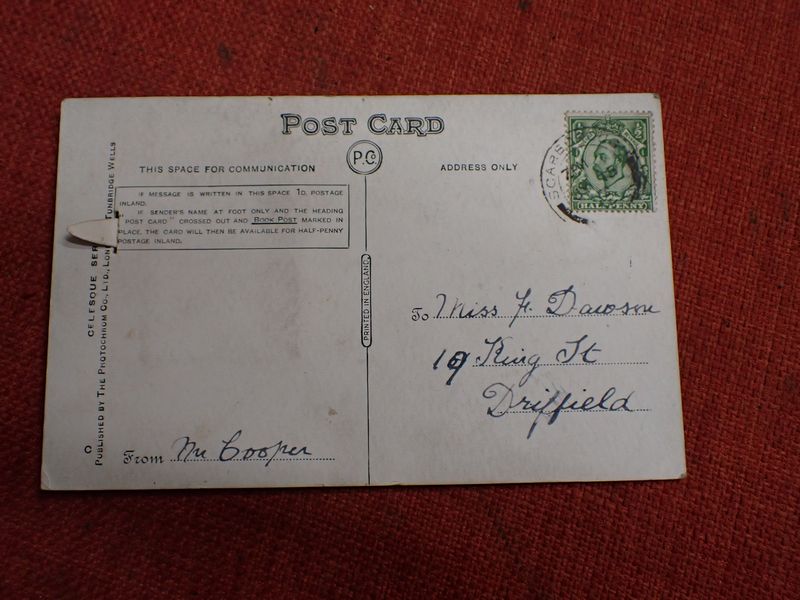 POST CARD
P.C.
THIS SPACE FOR COMMUNICATION
ADDRESS ONLY
IF MESSAGE IS WRITTEN IN THIS SPACE 1D. POSTAGE
INLAND.
IF SENDER'S NAME AT FOOT ONLY AND THE HEADING
"POST CARD" CROSSED OUT AND BOOK POST MARKED IN
PLACE, THE CARD WILL THEN BE AVAILABLE FOR HALF-PENNY
POSTAGE INLAND.
HALF-PENNY
PRINTED IN ENGLAND
CELESQUE
PUBLISHED BY THE PHOTOCHROM CO., LTD., TUNBRIDGE WELLS
To Miss F. Dawson
19 King St
Driffield
From Mr Cooper